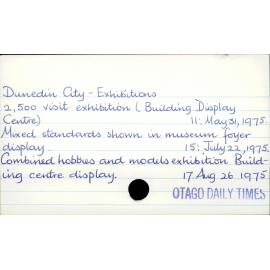 Dunedin City - Exhibitions
2,500 visit exhibition (Building Display
Centre) 11: May 31, 1975.
Mixed standards shown in museum foyer
display. 15: July 22, 1975.
Combined hobbies and models exhibition. Build-
ing centre display. 17. Aug 26. 1975.
OTAGO DAILY TIMES